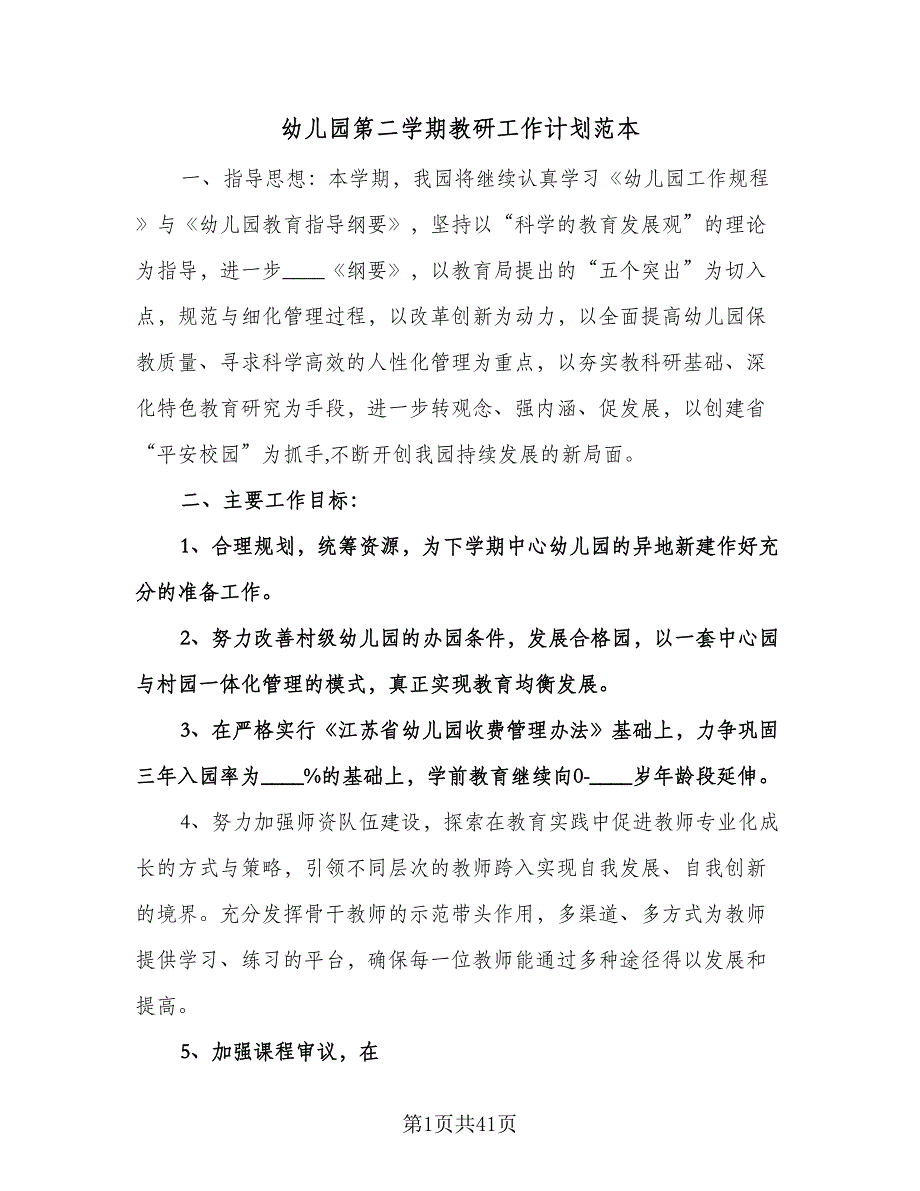 幼儿园第二学期教研工作计划范本
一、指导思想：本学期，我园将继续认真学习《幼儿园工作规程
》与《幼儿园教育指导纲要》，坚持以“科学的教育发展观”的理论
为指导，进一步____《纲要》，以教育局提出的“五个突出”为切入
点，规范与细化管理过程，以改革创新为动力，以全面提高幼儿园保
教质量、寻求科学高效的人性化管理为重点，以夯实教科研基础、深
化特色教育研究为手段，进一步转观念、强内涵、促发展，以创建省
“平安校园”为抓手,不断开创我园持续发展的新局面。
二、主要工作目标：
1、合理规划，统筹资源，为下学期中心幼儿园的异地新建作好充
分的准备工作。
2、努力改善村级幼儿园的办园条件，发展合格园，以一套中心园
与村园一体化管理的模式，真正实现教育均衡发展。
3、在严格实行《江苏省幼儿园收费管理办法》基础上，力争巩固
三年入园率为____%的基础上，学前教育继续向0-____岁年龄段延伸。
4、努力加强师资队伍建设，探索在教育实践中促进教师专业化成
长的方式与策略，引领不同层次的教师跨入实现自我发展、自我创新
的境界。充分发挥骨干教师的示范带头作用，多渠道、多方式为教师
提供学习、练习的平台，确保每一位教师能通过多种途径得以发展和
提高。
5、加强课程审议，在
第1页共41页